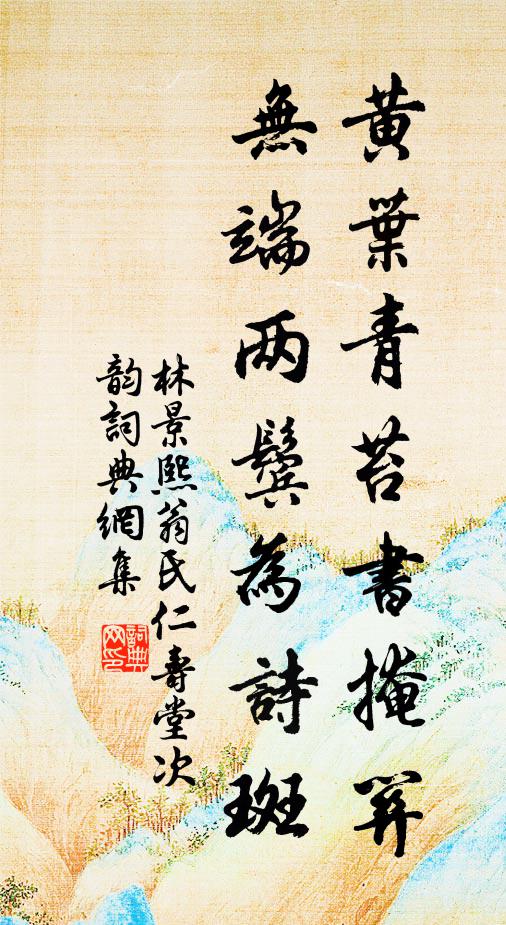 黄葉青苔書掩關
無端两鬓為詩斑
林景熙翁氏仁壽堂次
韵詞典網集
詞典網印